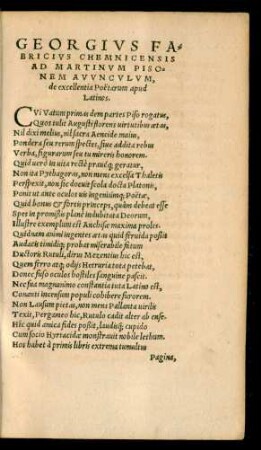 GEORGIVS FA-
BRICIVS CHEMNICENSIS
AD MARTINVM PISO-
NEM AVVNCVLVM,
de excellentia Poëtarum apud
Latinos.
CVi Vatum primas dem partes Piso rogatur,
Quos tulit Augusti florens uirtutibus ætas,
Nil dixi melius, nil sacra Aeneide maius,
Pondera seu rerum spectes, siue addita rebus
Verba, figurarum seu tu mireris honorem.
Quid uerò in uita rectè prauéq; geratur,
Non ita Pythagoras, non mens excelsa Thaletis
Perspexit, non sic docuit schola docta Platonis,
Ponit ut ante oculos uis ingeniumq; Poëtæ,
Quid bonus & fortis princeps, quàm debeat esse
Spes in promissis planè indubitata Deorum,
Illustre exemplum est Anchisæ maxima proles.
Quidnam animi ingentes ætas quid feruida possit
Audatis timidiq; probat miserabile fatum
Ductoris Rutuli, dirus Mezentius hic est,
Quem ferro atq; odijs Hetruria tota petebat,
Donec suso oculos hostiles sanguine pascit.
Nec sua magnanimo constantia tuta Latino est,
Conanti incensum populi cohibere furorem.
Non Lausum pietas, non mens Pallanta uirilis
Texit, Pergameo hic, Rutulo cadit alter ab ense.
Hic quid amica fides possit, laudisq; cupido
Cum socio Hyrtacidæ monstrauit nobile lethum.
Hos habet à primis libris extrema tumultus
Pagina,